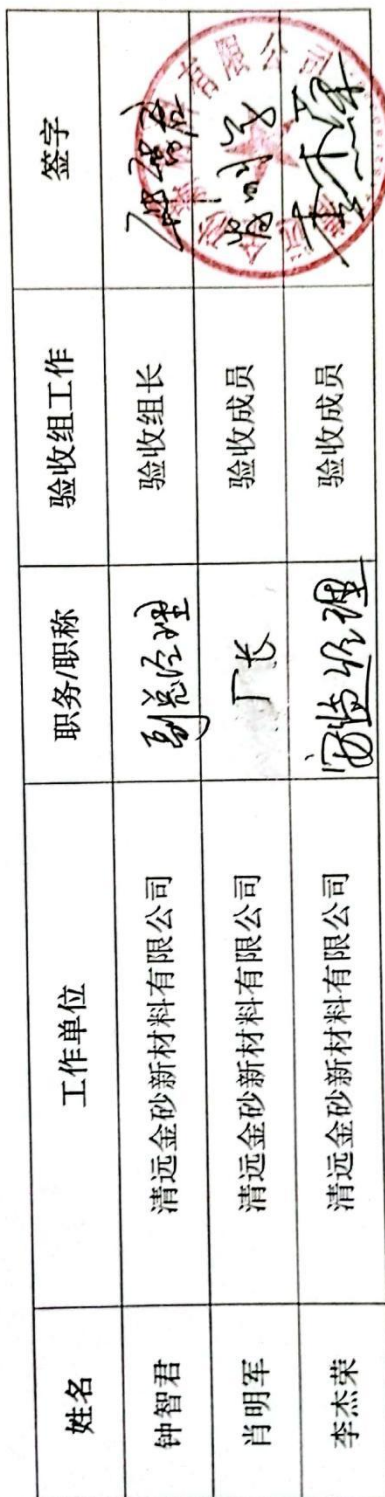 姓名 工作单位 职务/职称 验收组工作 签字
钟智君 清远金砂新材料有限公司 副总经理 验收组长
肖明军 清远金砂新材料有限公司 厂长 验收成员
李杰荣 清远金砂新材料有限公司 安监经理 验收成员